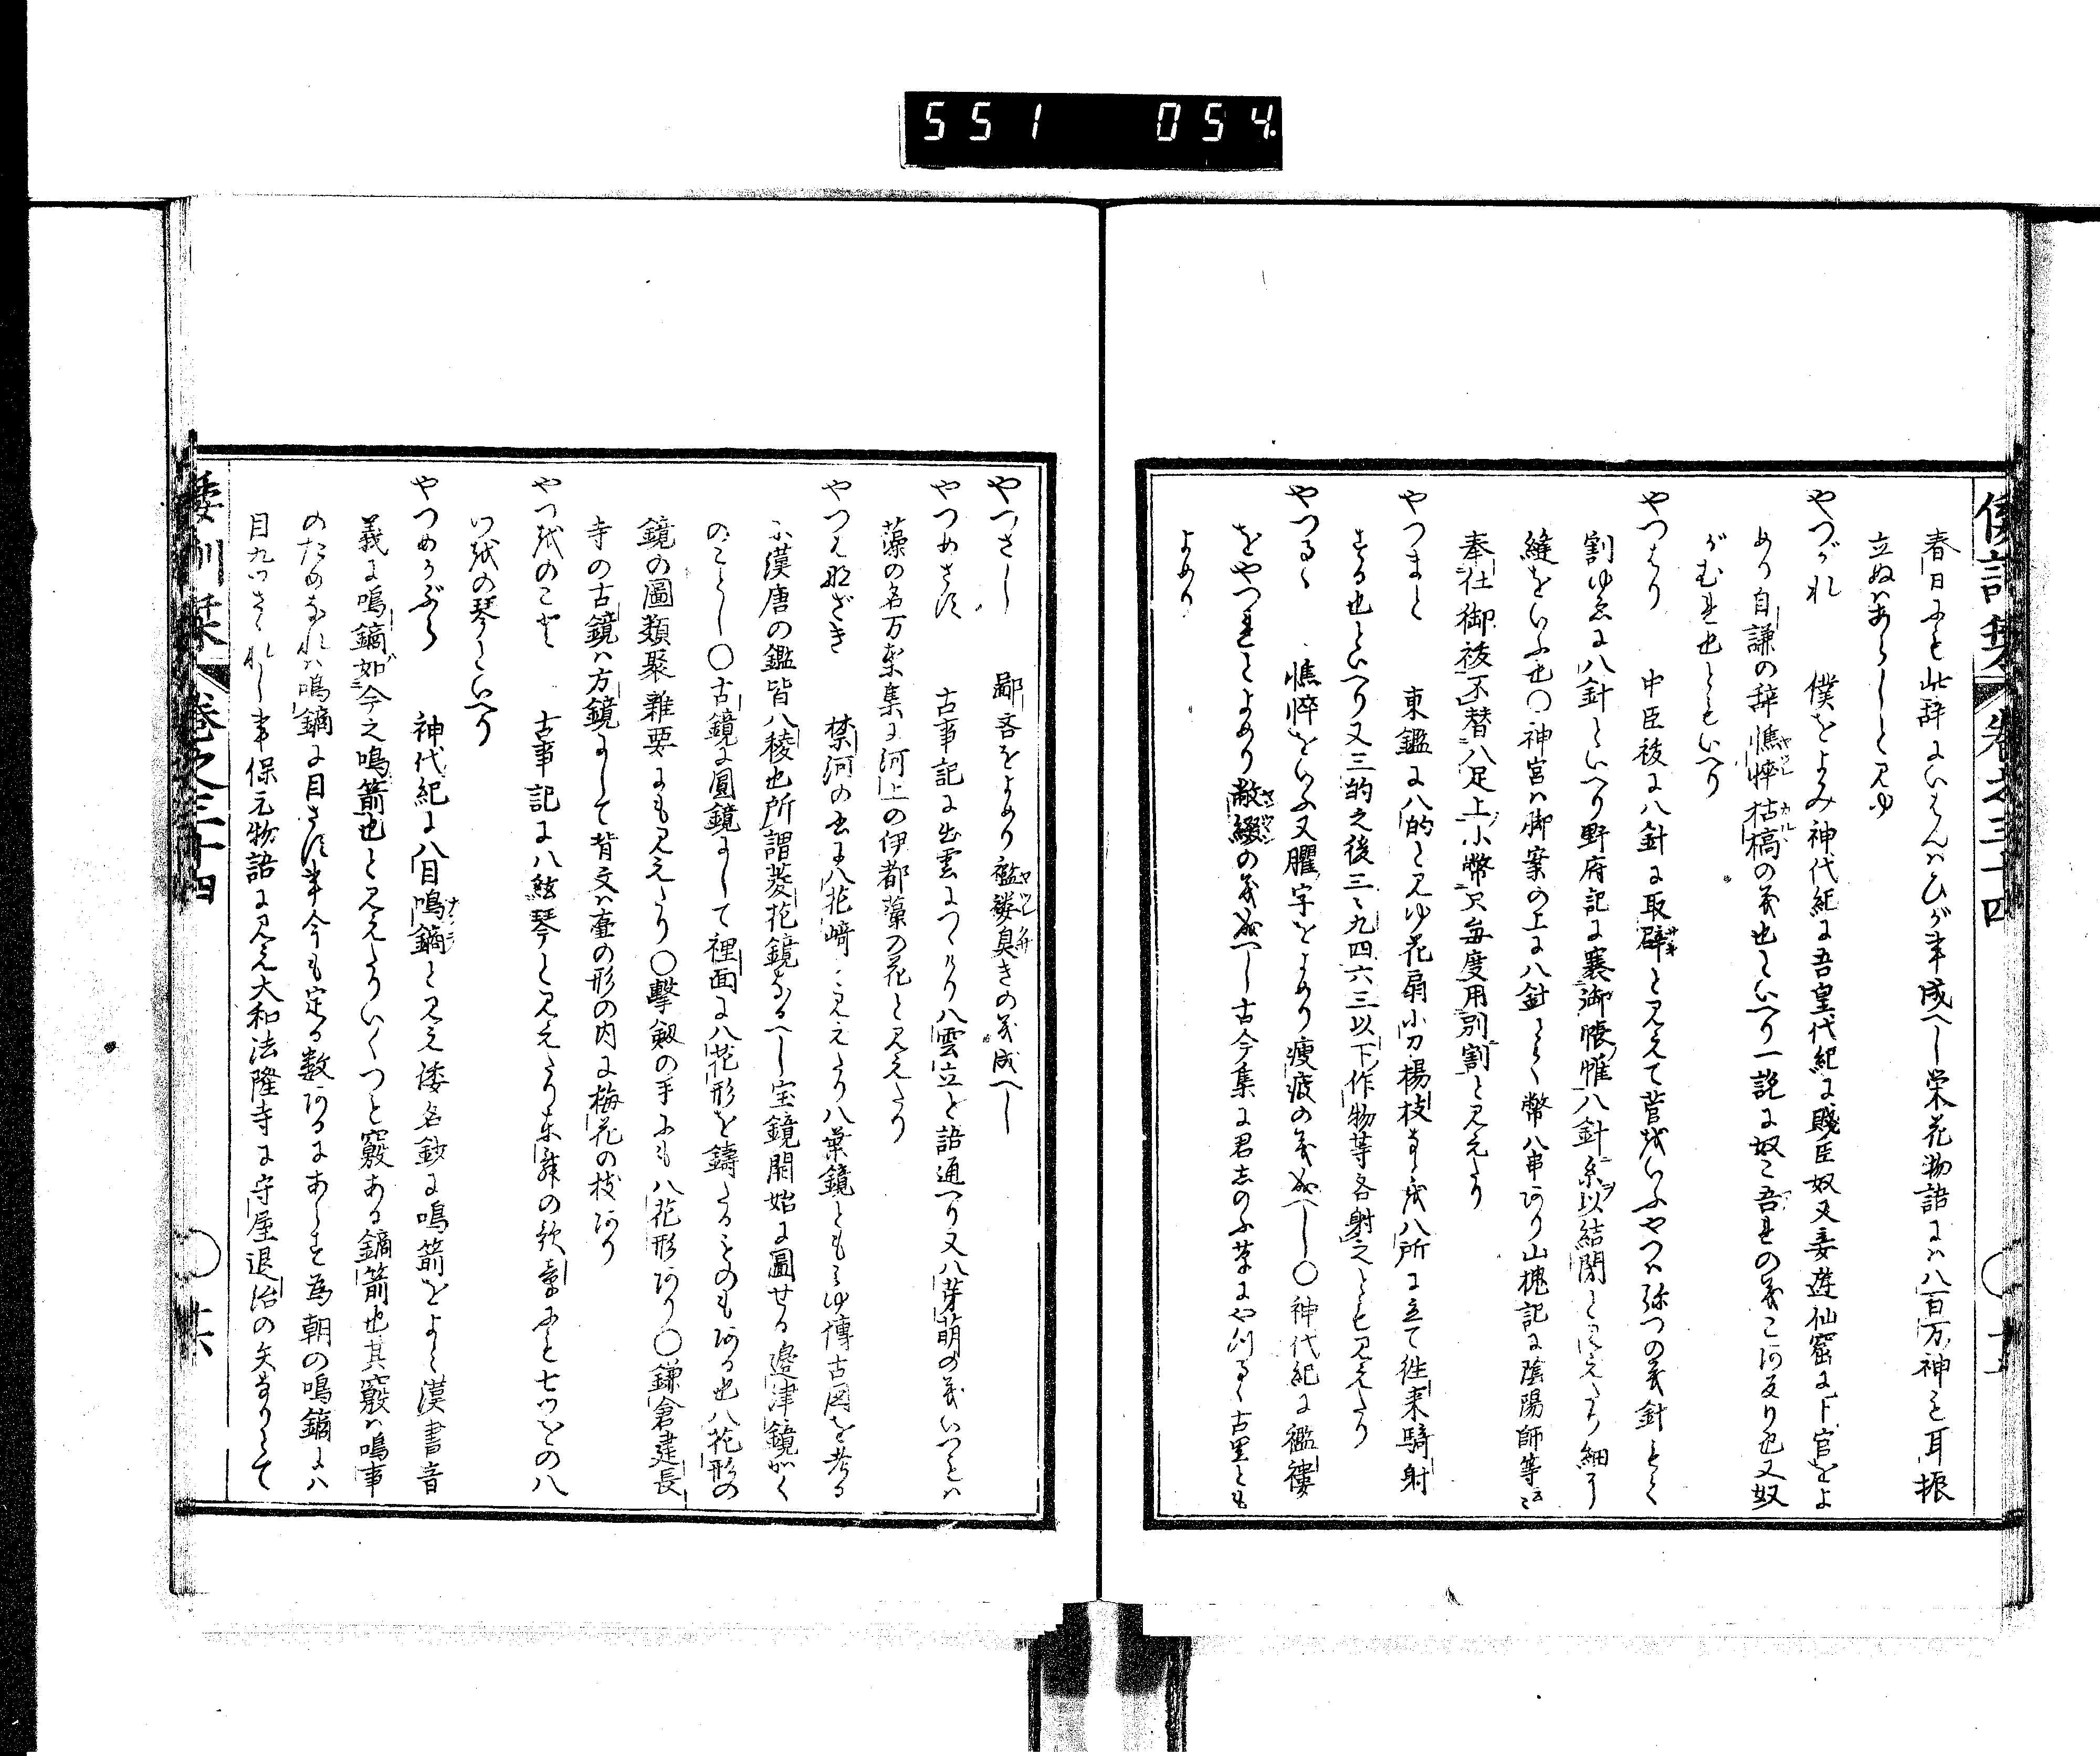 551 054
倭訓栞 卷之三十四
春日にも此辞にいはんハひが事成へし栄花物語にハ八百万神も耳振
立ぬハあらしと見ゆ
やつがれ 僕をよみ神代紀に吾皇代紀に賤臣奴又妾遊仙窟に下官をよ
めり自謙の辞憔悴枯槁の義也といへり一説に奴こ吾れの義こ阿反り也又奴
がむれ也ともいへり
やつはり 中臣祓に八針に取辟と見えて菅をいふやつハ弥つの義針もて
割ゆゑに八針といへり野府記に褰御帳帷八針糸以結閇と見えたり細に
縫をいふ也〇神宮ハ御案の上に八針とて幣八串あり山槐記に陰陽師等
奉仕御祓不替八足上小幣只毎度用別割と見えたり
やつまと 東鑑に八的と見ゆ花扇小刀楊枝なとを八所に立て往来騎射
する也といへり又三的之後三々九四六三以下作物等各射之とも見えたり
やつるゝ 憔悴をいふ又臞字をよめり痩疲の義なるへし〇神代紀に襤褸
をやつれとよめり敝綴の義なるへし古今集に君しのふ草にやつるゝ古里とも
よめり
やつさし 鄙吝をよめり襤褸臭きの義成へし
やつめさす 古事記に出雲につゝけり八雲立と語通へり又八芽萌の義いつもハ
藻の名万葉集に河上の伊都藻の花と見えたり
やつはなざき 禁河の書に八花﨑と見えたり八葉鏡ともミゆ博古図を考る
に漢唐の鑑皆八稜也所謂菱花鏡なるへし宝鏡開始に圖せる邊津鏡かく
のことし〇古鏡に圓鏡にして裡面に八花形を鑄たるものもある也八花形の
鏡の圖類聚雜要にも見えたり〇擊剱の手にも八花形あり〇鎌倉建長
寺の古鏡ハ方鏡にして背文ハ臺の形の内に梅花の枝あり
やつをのこと 古事記に八絃琴と見えたり東舞の歌章にも七つをの八
つをの琴といへり
やつめかぶら 神代紀に八目鳴鏑と見え倭名鈔に鳴箭をよみ漢書音
義に鳴鏑如今之鳴箭也と見えたりいくつと竅ある鏑箭也其竅ハ鳴事
のためなれハ鳴鏑に目さす事今も定る数あるにあらす為朝の鳴鏑にハ
目九つさゝれし事保元物語に見え大和法隆寺に守屋退治の矢なりとて
倭訓栞 卷之三十四 〇 廿六